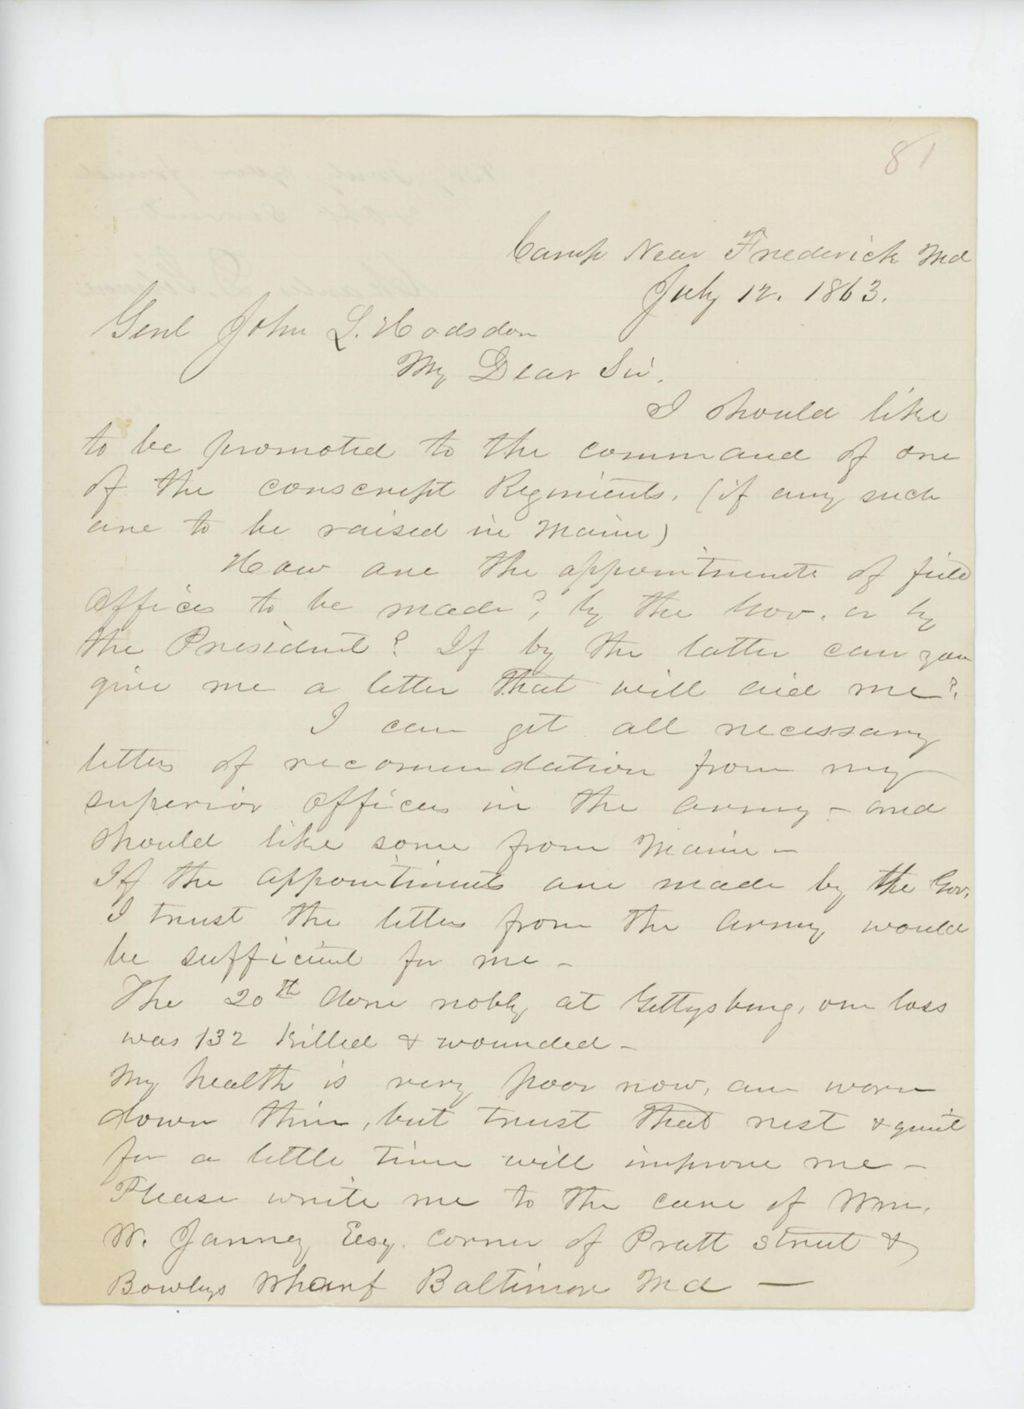 81
Camp Near Frederick Md
July 12. 1863.
Genl John L. Hodsdon
My Dear Sir.
I should like
to be promoted to the command of one
of the conscript Regiments. (if any such
are to be raised in Maine)
How are the appointments of field
Offices to be made?, by the Gov. or by
the President? If by the latter can you
give me a letter that will aid me?.
I can get all necessary
letters of recomendation from my
superior officers in the army - and
should like some from Maine -
If the appointments are made by the Gov.
I trust the letters from the Army would
be sufficient for me -
The 20th done nobly at Gettysburg, our loss
was 132 killed & wounded -
My health is very poor now, am worn
down thin, but trust that rest & quiet
for a little time will improve me -
Please write me to the care of Wm.
W. Janney Esq. corner of Pratt street &
Bowlys Wharf Baltimore Md -